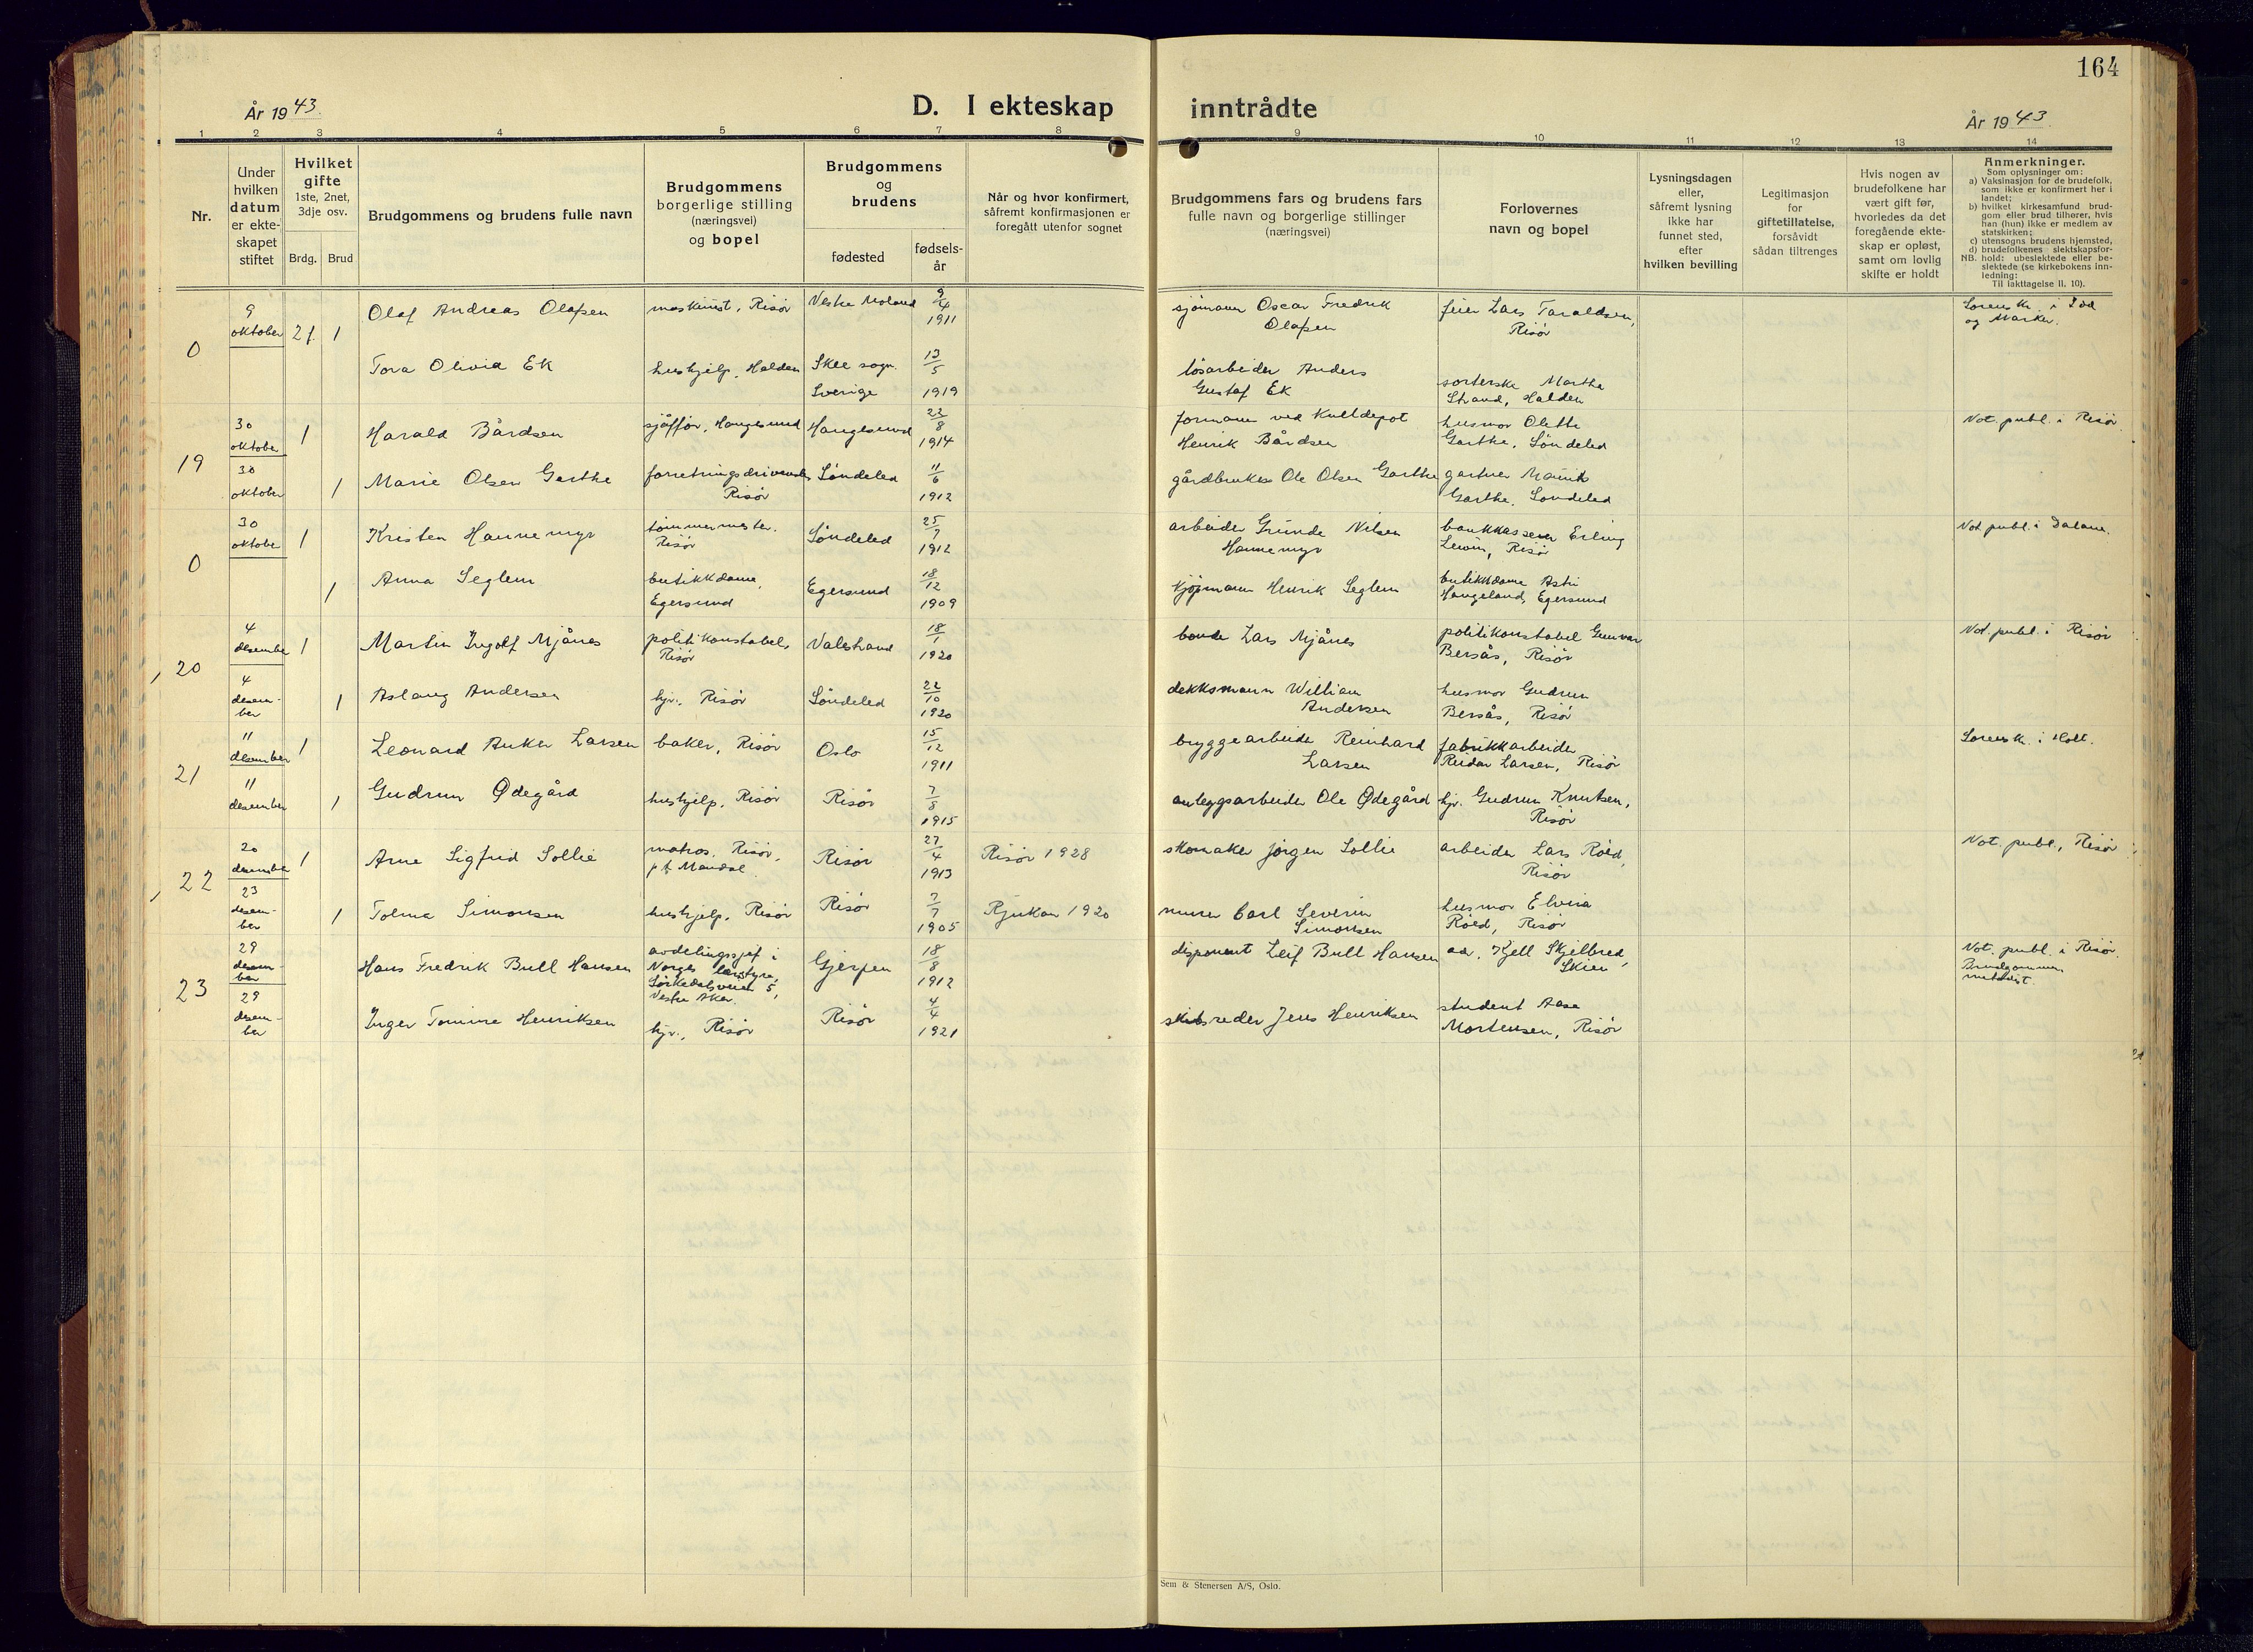 164
År 1943.
D. I ekteskap inntrådte
År 1943.
1 2 3 4 5 6 7 8 9 10 11 12 13 14
Nr.
Under
hvilken
datum
er ekte-
skapet
stiftet
Hvilket
gifte
1ste, 2net,
3dje osv.
Brdg. Brud
Brudgommens og brudens fulle navn
Brudgommens
borgerlige stilling
(næringsvei)
og bopel
Brudgommens
og
brudens
fødested
fødsels-
år
Når og hvor konfirmert,
såfremt konfirmasjonen er
foregått utenfor sognet
Brudgommens fars og brudens fars
fulle navn og borgerlige stillinger
(næringsvei)
Forlovernes
navn og bopel
Lysningsdagen
eller,
såfremt lysning
ikke har
funnet sted,
efter
hvilken bevilling
Legitimasjon
for
giftetillatelse,
forsåvidt
sådan tiltrenges
Hvis nogen av
brudefolkene har
vært gift før,
hvorledes da det
foregående ekte-
skap er opløst,
samt om lovlig
skifte er holdt
Anmerkninger.
Som oplysninger om:
a) Vaksinasjon for de brudefolk,
som ikke er konfirmert her i
landet;
b) hvilket kirkesamfund brud-
gom eller brud tilhører, hvis
han (hun) ikke er medlem av
statskirken;
c) utensogns brudens hjemsted,
d) brudefolkenes slektskapsfor-
NB. hold: ubeslektede eller be-
slektede (se kirkebokens inn-
ledning:
Til iakttagelse II. 10).
0
9
oktober
2 f. 1
Olaf Andreas Olafsen
maskinist, Risör
Vestre Moland
9/4
1911
sjømann Oscar Fredrik
Olafsen
feier Lars Taraldsen,
Risör
Sorensk. i Idd
og Marker.
Tora Olivia Ek
hushjelp, Halden
Skee sogn
Sverige
13/5
1919
løsarbeider Anders
Gustaf Ek
sorterske Martha
Strand, Halden
19
30
oktober
1
Harald Bårdsen
sjåffør, Haugesund
Haugesund
22/8
1914
formann ved Kulldepot
Henrik Bårdsen
husmor Olette
Garthe, Söndeled
Not. publ. i Risör.
30
oktober
1
Marie Olsen Garthe
forretningsdrivende
Risör
Söndeled
11/6
1912
gårdbruker Ole Olsen Garthe
gartner
Garthe, Söndeled
0
30
oktober
1
Kristen Hannemyr
tömmermester,
Risör
Söndeled
25/7
1912
arbeider Grunde Nilsen
Hannemyr
bankkasserer Erling
Risör
Not. publ. i Dalane.
1
Anna Seglem
butikkdame,
Egersund
Egersund
18/12
1909
kjøpmann Henrik Seglem
butikkdame Astri
Haugeland, Egersund
20
4
desember
1
Martin Ingolf Mjånes
politikonstabel,
Risör
Valestrand
18/1
1920
bonde Lars Mjånes
politikonstabel Gunnar
Bersås, Risör
Not. publ. i Risör
4
desem-
ber
1
Aslaug Andersen
hjv., Risör
Söndeled
22/10
1920
dekksmann William
Andersen
husmor Gudrun
Bersås, Risör
21
11
desember
1
Leonard Anker Larsen
baker, Risör
Oslo
15/12
1911
bryggearbeider Reinhard
Larsen
fabrikkarbeider
Reidar Larsen, Risör
Sorensk. i Holt.
11
desember
1
Gudrun Ødegård
hushjelp, Risör
Risör
7/8
1915
anleggsarbeider Ole Ødegård
hjv. Gudrun Knutsen,
Risör
22
20
desember
1
Arne Sigfrid Sollie
matros, Risör,
p.t. Mandal
Risör
27/4
1913
Risör 1928
skomaker Jörgen Sollie
arbeider Lars Röed,
Risör
Not. publ., Risör
23
desem-
ber
1
Tolma Simonsen
hushjelp, Risör
Risör
7/7
1905
Rjukan 1920
murer Carl Severin
Simonsen
husmor Elvira
Röed, Risör
23
29
desem-
ber
Hans Fredrik Bull Hansen
avdelingssjef i
Norges
Sörkedalsveien 5,
Vestre Aker.
Gjerpen
18/8
1912
disponent Leif Bull Hansen
Kjell Skjelbred,
Skien
Not. publ. i Risör.
Brudgommen
metodist.
29
desem-
ber
Inger Tomine Henriksen
hjv., Risör
Risör
4/4
1921
skibsreder Jens Henriksen
student Aase
Mortensen, Risör
Sem & Stenersen A/S, Oslo.